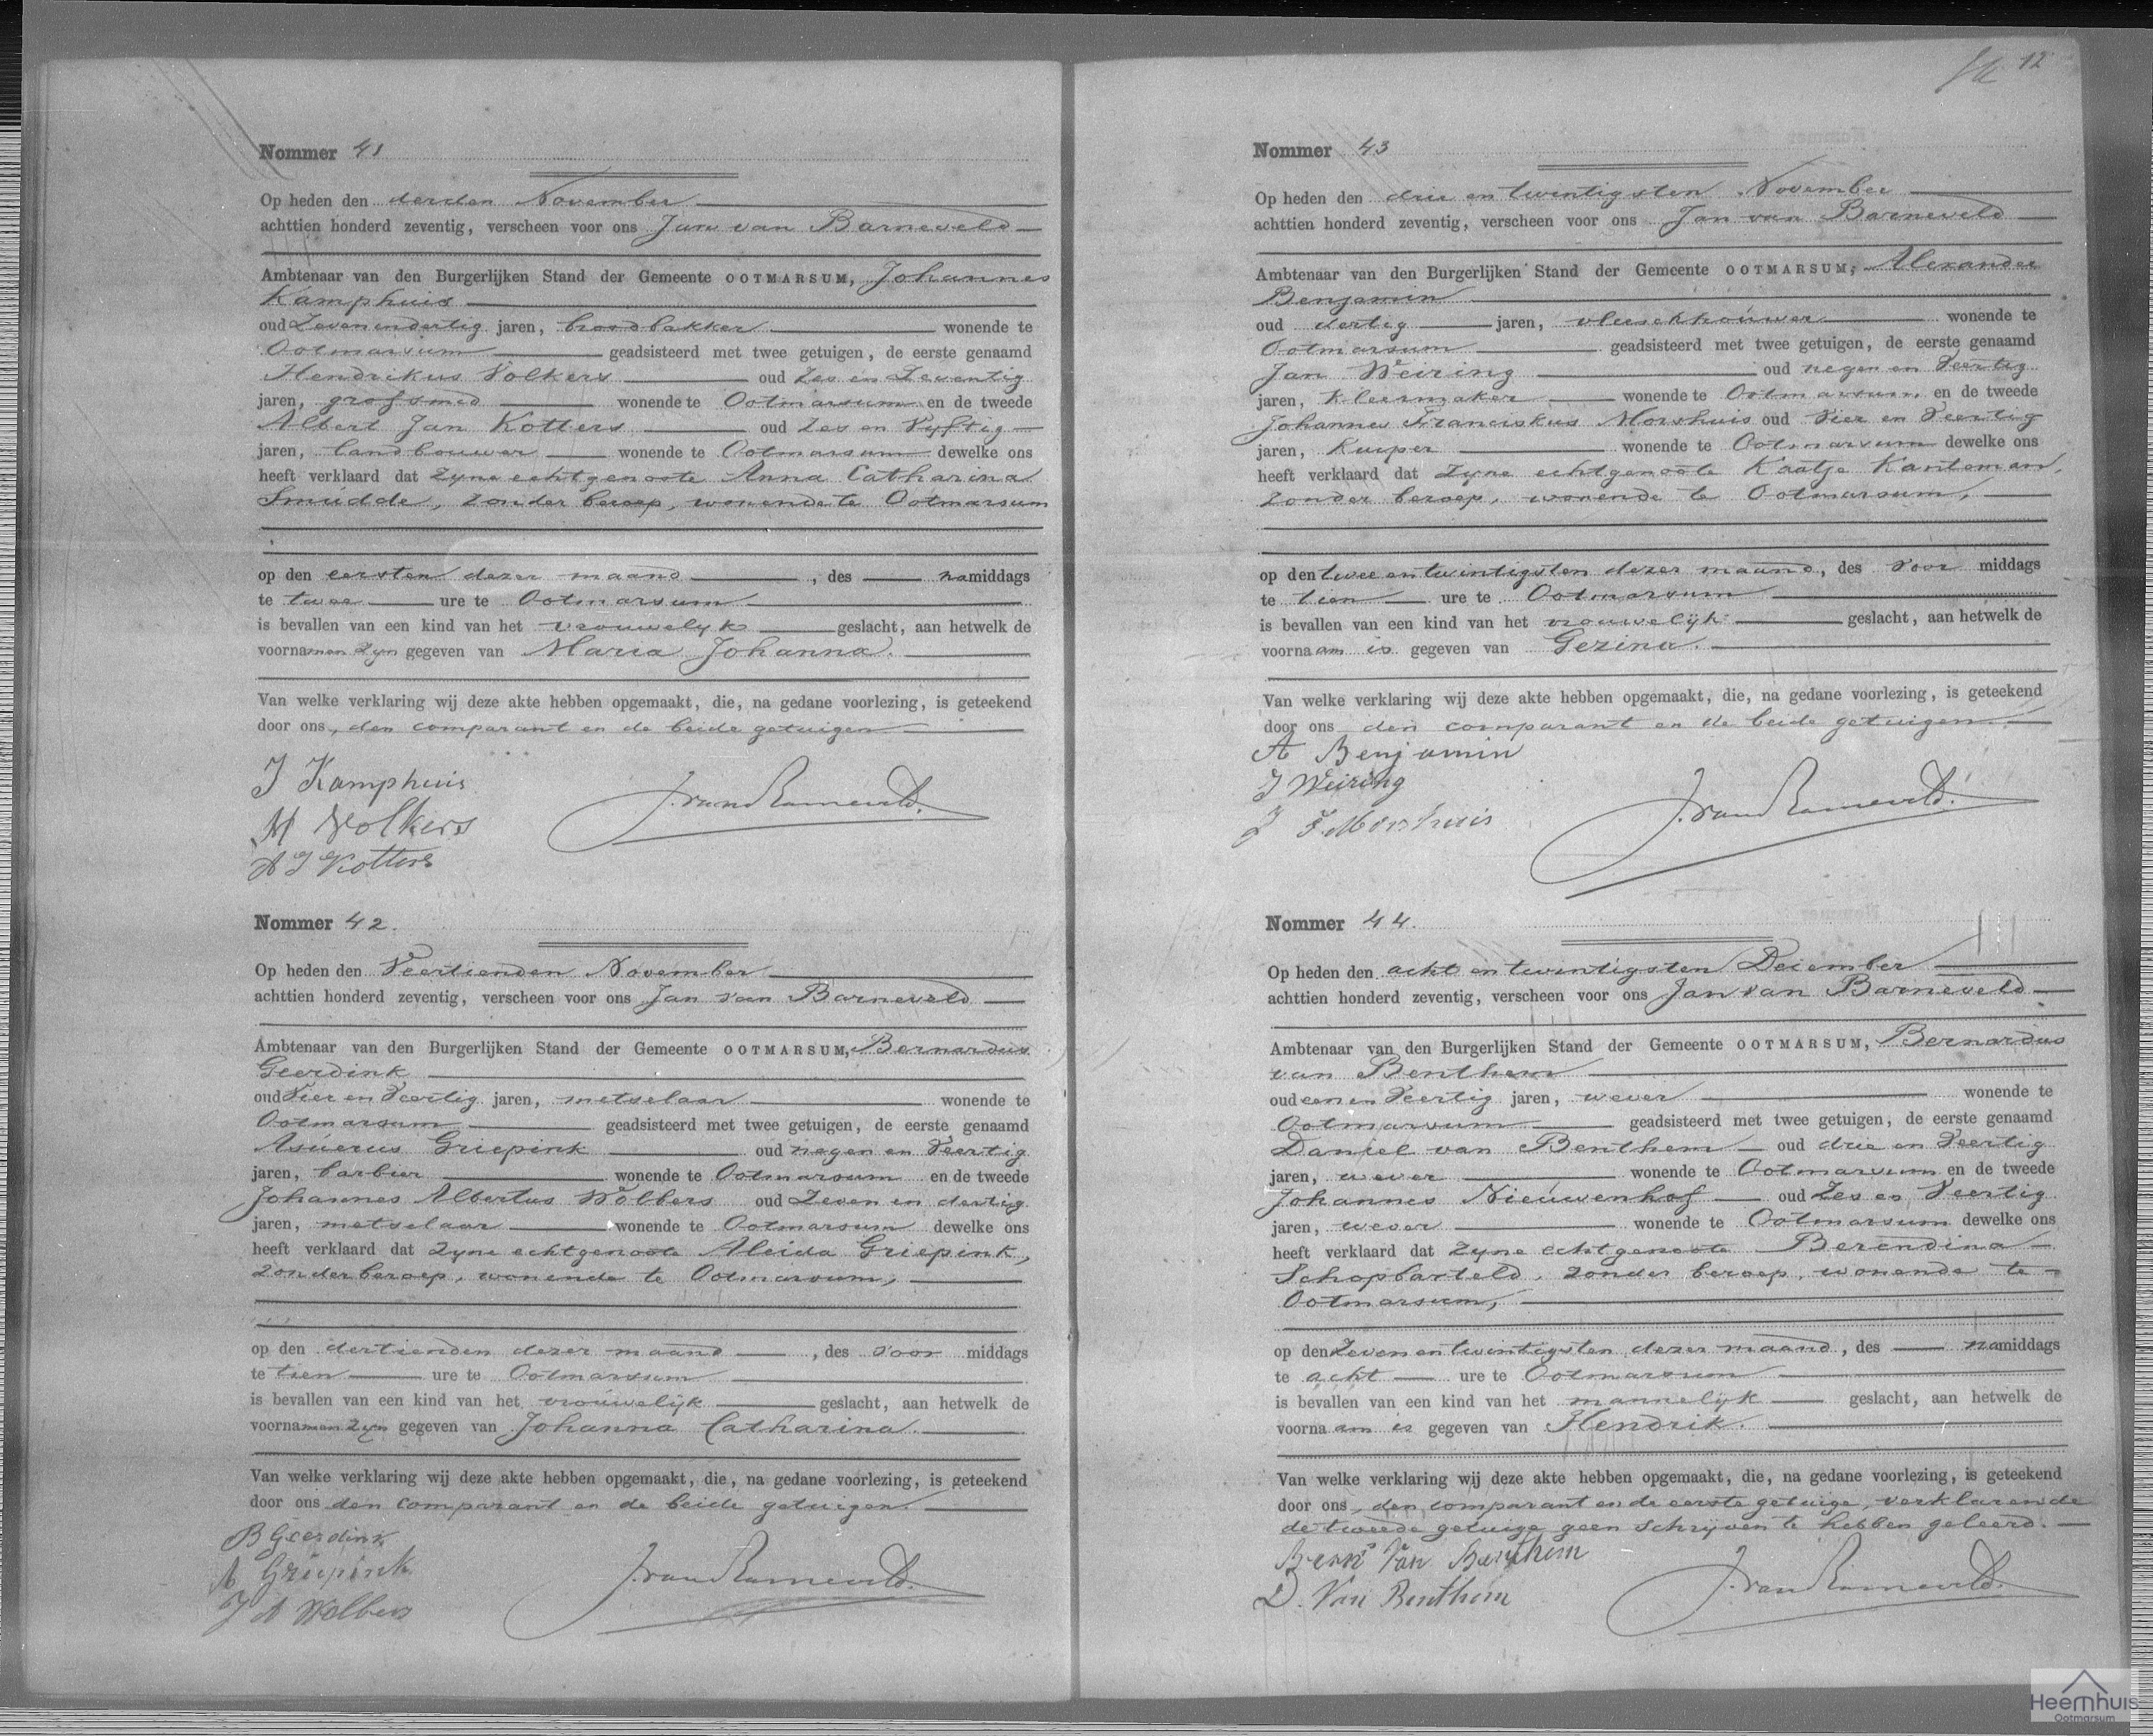 Nommer 41
Op heden den derden November
achttien honderd zeventig, verscheen voor ons Jan van Barneveld
Ambtenaar van den Burgerlijken Stand der Gemeente OOTMARSUM, Johannes
Kamphuis
oud Zeven en dertig jaren, broodbakker wonende te
Ootmarsum geadsisteerd met twee getuigen, de eerste genaamd
Hendrikus Volkers oud Zes en Zeventig
jaren, grofsmed wonende te Ootmarsum en de tweede
Albert Jan Kotters oud Zes en Vyftig
jaren, landbouwer wonende te Ootmarsum dewelke ons
heeft verklaard dat zyne echtgenoote Anna Catharina
Smudde, zonder beroep, wonende te Ootmarsum
op den eersten dezer maand, des namiddags
te twee ure te Ootmarsum
is bevallen van een kind van het vrouwelyk geslacht, aan hetwelk de
voornamen zyn gegeven van Maria Johanna.
Van welke verklaring wij deze akte hebben opgemaakt, die, na gedane voorlezing, is geteekend
door ons, den comparant en de beide getuigen
J Kamphuis
H Volkers
A J Kotters
J. van Barneveld.
Nommer 42.
Op heden den Veertienden November
achttien honderd zeventig, verscheen voor ons Jan van Barneveld
Ambtenaar van den Burgerlijken Stand der Gemeente OOTMARSUM, Bernardus
Geerdink
oud Vier en Veertig jaren, metselaar wonende te
Ootmarsum geadsisteerd met twee getuigen, de eerste genaamd
Asuerus Griepink oud negen en Veertig
jaren, barbier wonende te Ootmarsum en de tweede
Johannes Albertus Wolbers oud Zeven en dertig
jaren, metselaar wonende te Ootmarsum dewelke ons
heeft verklaard dat zyne echtgenoote Aleida Griepink,
zonder beroep, wonende te Ootmarsum,
op den dertienden dezer maand, des voor middags
te tien ure te Ootmarsum
is bevallen van een kind van het vrouwelijk geslacht, aan hetwelk de
voornamen zyn gegeven van Johanna Catharina.
Van welke verklaring wij deze akte hebben opgemaakt, die, na gedane voorlezing, is geteekend
door ons den comparant en de beide getuigen.
B Geerdink
A Griepink
J A Wolbers
J. van Barneveld.
12
Nommer 43
Op heden den drie en twintigsten November
achttien honderd zeventig, verscheen voor ons Jan van Barneveld
Ambtenaar van den Burgerlijken Stand der Gemeente OOTMARSUM, Alexander
Benjamin
oud dertig jaren, vleeschhouwer wonende te
Ootmarsum geadsisteerd met twee getuigen, de eerste genaamd
Jan Weiring oud negen en Veertig
jaren, kleermaker wonende te Ootmarsum en de tweede
Johannes Franciskus Morshuis oud Vier en Veertig
jaren, kuiper wonende te Ootmarsum dewelke ons
heeft verklaard dat zyne echtgenoote Kaatje Kanteman,
zonder beroep, wonende te Ootmarsum,
op den twee en twintigsten dezer maand, des voor middags
te tien ure te Ootmarsum
is bevallen van een kind van het vrouwelijk geslacht, aan hetwelk de
voornaam is gegeven van Gezina.
Van welke verklaring wij deze akte hebben opgemaakt, die, na gedane voorlezing, is geteekend
door ons den comparant en de beide getuigen.
A Benjamin
J Weiring
J F. Morshuis
J. van Barneveld.
Nommer 44.
Op heden den acht en twintigsten December
achttien honderd zeventig, verscheen voor ons Jan van Barneveld
Ambtenaar van den Burgerlijken Stand der Gemeente OOTMARSUM, Bernardus
van Benthem
oud een en Veertig jaren, wever wonende te
Ootmarsum geadsisteerd met twee getuigen, de eerste genaamd
Daniel van Benthem oud drie en Veertig
jaren, wever wonende te Ootmarsum en de tweede
Johannes Nieuwenhof oud Zes en Veertig
jaren, wever wonende te Ootmarsum dewelke ons
heeft verklaard dat zyne echtgenoote Berendina
Schopbarteld, zonder beroep, wonende te
Ootmarsum,
op den Zeven en twintigsten dezer maand, des namiddags
te acht ure te Ootmarsum
is bevallen van een kind van het mannelyk geslacht, aan hetwelk de
voornaam is gegeven van Hendrik.
Van welke verklaring wij deze akte hebben opgemaakt, die, na gedane voorlezing, is geteekend
door ons, den comparant en de eerste getuige, verklarende
de tweede getuige geen schrijven te hebben geleerd.
Bern's Van Benthem
D. Van Benthem
J. van Barneveld.
Heemhuis
Ootmarsum